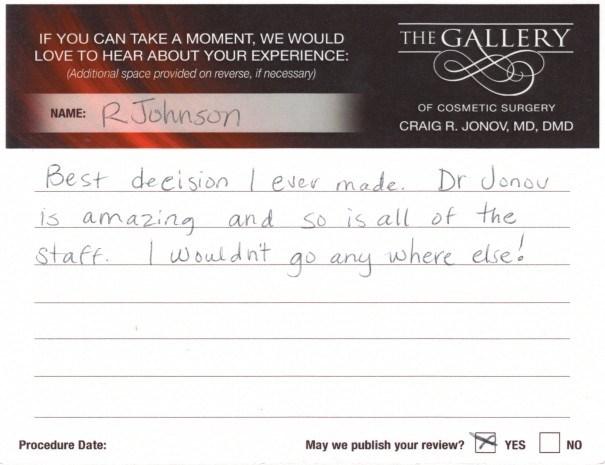 IF YOU CAN TAKE A MOMENT, WE WOULD
LOVE TO HEAR ABOUT YOUR EXPERIENCE:
(Additional space provided on reverse, if necessary)
NAME: R Johnson
THE GALLERY
OF COSMETIC SURGERY
CRAIG R. JONOV, MD, DMD
Best decision I ever made. Dr Jonov
is amazing and so is all of the
staff. I wouldn't go any where else!
Procedure Date:
May we publish your review? YES NO